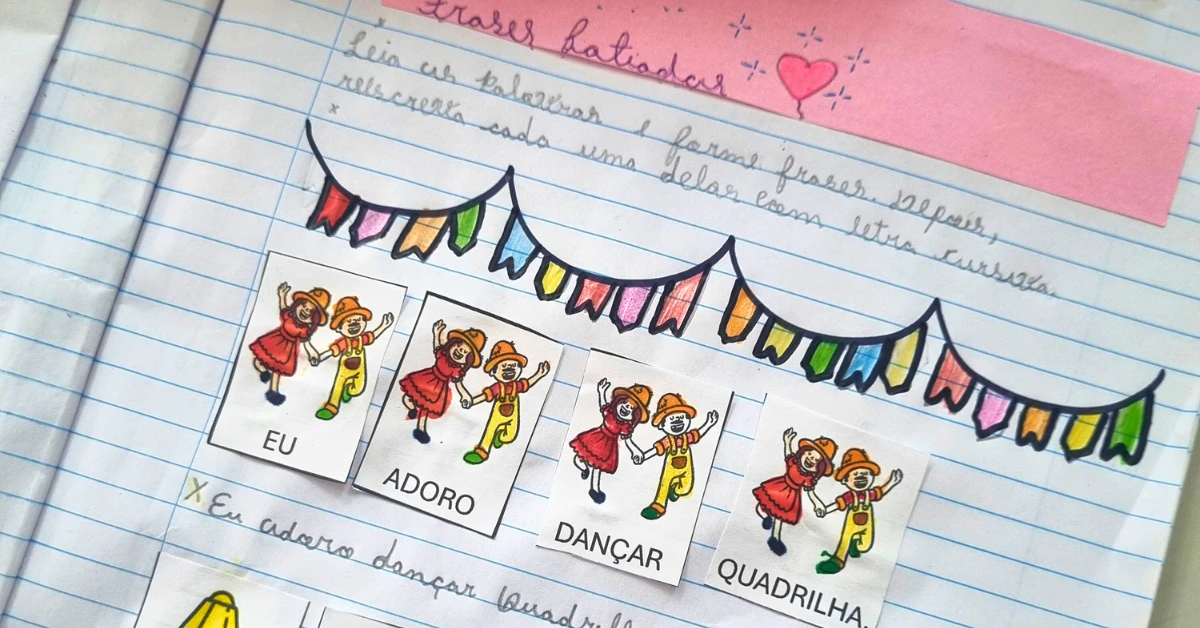 frases fatiadas
Leia as palavras e forme frases. Depois,
reescreva cada uma delas com letra cursiva.
EU
ADORO
DANÇAR
QUADRILHA.
X Eu adoro dançar